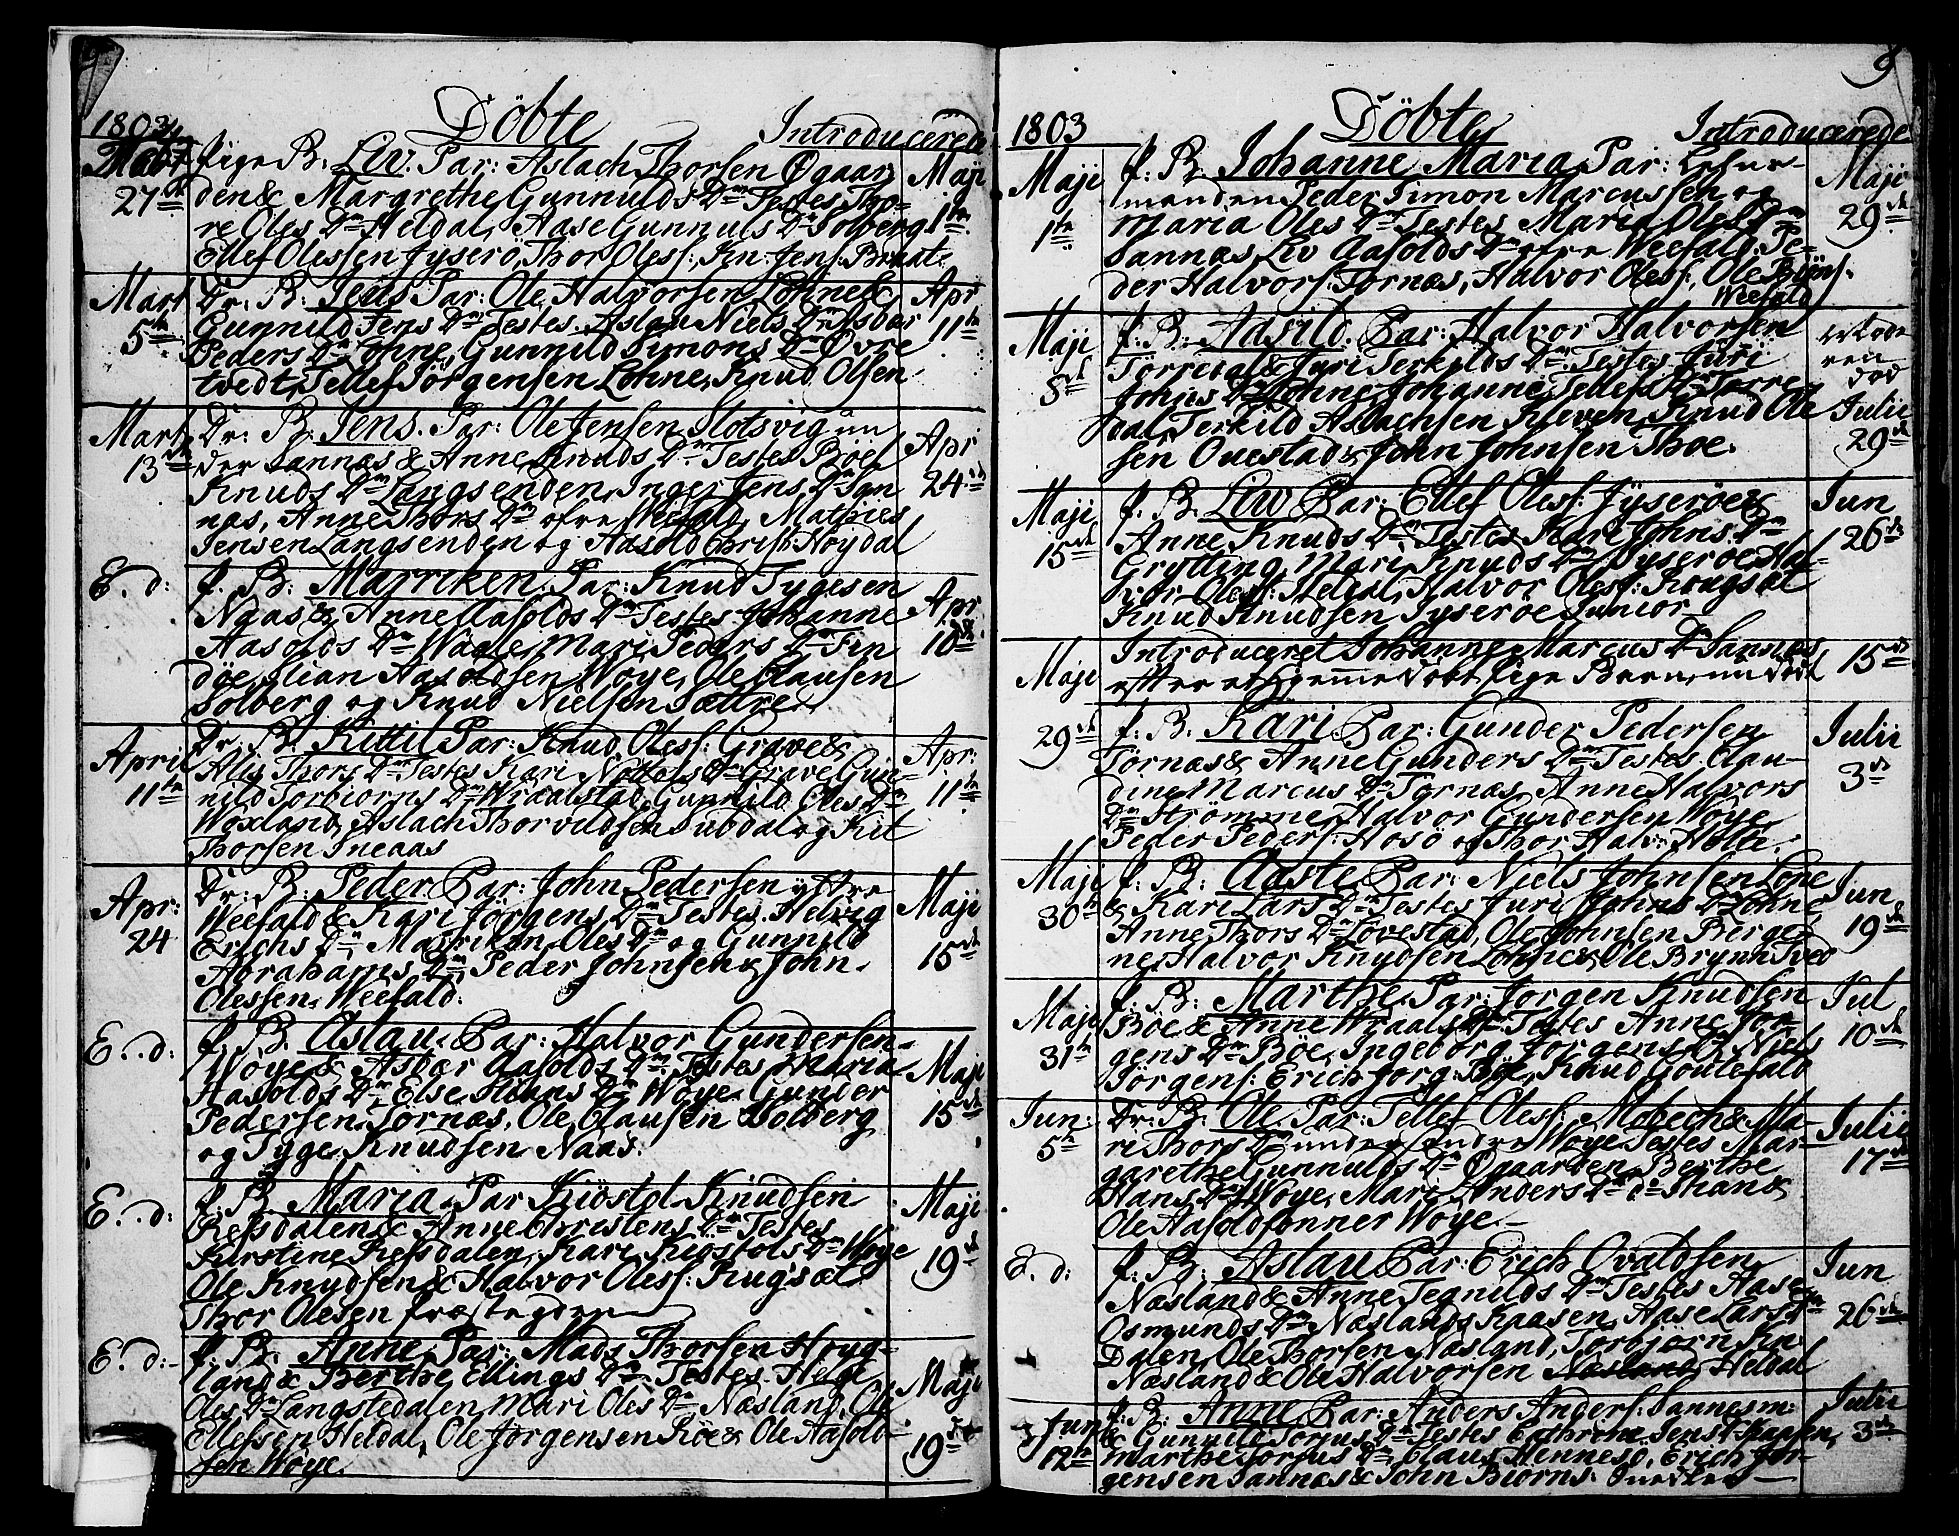 1803
Döbte
Introducerede
27de
Pige B: Liv. Par: Aslach Thorsen Øgaar
den & Margrethe Gunnulds Dr Testes Tho-
re Oles Dr Heldal, Aase Gunnuls Dr Solberg
Ellef Olessen Jyserö, Thor Oless: Jens
Maji
1te
Mart
5te
Dr. B: Jens Par: Ole Halvorsen Lohne &
Gunnild Jens Dr Testes. Aslau Niels Dr Asbär
Peders Dr Lohne, Gunnild Simons Dr Øvre
tvedt, Tellef Jörgensen Lohne, Knud Olsen
Apr
11te
Mart
13de
Dr: B. Jens. Par: Ole Jensen Slotsvig un
der Sannæs & Anne Knuds Dr Testes Böel
Knuds Dr Langsenden, Inger Jens Dr San
næs, Anne Thors Dr ofre Weefald, Mathies
Jensen Langsenden og Aasold Höydal
Apr
24de
E. d:
P. B: Marriken Par: Knud Tygesen
Naas & Anne Aasolds Dr Testes Johanne
Aasolds Dr Waale, Mari Peders Dr Fin
döe, Stian Aasoldsen Woye, Ole Clausen
Solberg og Knud Nielsen Sættre
Apr
10de
April
11te
Dr. B. Kittil Par: Knud Oless: Grave &
Alis Thors Dr Testes Kari Dr Grave Gun-
nild Torbiorns Dr Wraalstad, Gunnild Oles Dr
Woxland, Aslach Thorvildsen Subdal og Kit
Thorsen Ineaas
Apr:
11te
Apr:
24
Dr: B: Peder Par: John Pedersen yttre
Weefald & Kari Jörgens Dr Testes. Helvig
Erichs Dr Marriken Oles Dr og Gunnild
Abrahams Dr Peder Johnsen & John
Olessen Weefald.
Maji
15de
E. d:
P. B: Aslau. Par: Halvor Gundersen
Woye & Asbär Aasolds Dr Testes Maria
Aasolds Dr Else Stians Dr Woye Gunder
Pedersen Tornæs, Ole Clausen Solberg
og Tyge Knudsen Naas.
Maji
15de
E. d:
P. B: Maria. Par Kiöstol Knudsen
Refsdalen & Anne Christens Dr Testes
Kirstine Refsdalen, Kari Kiostols Dr Woye
Ole Knudsen & Halvor Oless: Rugsæt
Thor Olesen Præstegden
Maji
19de
E. d:
P. B: Anne Par: Mads Thorsen Höyg-
land & Berthe Ellings Dr Testes Helge
Oles Dr Langstedalen, Mari Oles Dr Næsland, Ole
Ellefsen Heldal, Ole Jörgensen Röe & Ole Aasold-
sen Woye.
Maji
19de
9
1803
Döbte
Introducerede
Maji
1te
P. B. Johanne Maria Par: Lehns-
manden Peder Simon Marcussen og
Maria Oles Dr Testes Maria Oles Dr
Sannæs, Liv Aasolds Dr ofre Weefald, Pe-
der Halvors Tornæs, Halvor Oless:, Ole Biörs.
Weefald
Maji
29de
Maji
8de
P. B: Aasild. Par: Halvor Halvorsen
Törredal & Juri Terkilds Dr Testes Juri
Johns Dr Lohne, Johanne Tellefs Dr Torre
dal, Terkild Aslachsen Kleven, Knud Ole
sen Ouestad & John Johnsen Thoe.
Mode
ren
död
Julii
29de
Maji
15de
P. B. Liv Par: Ellef Oless: Jyseröe &
Anne Knuds Dr Testes Kari Johns Dr
Grytting, Mari Knuds Dr Jyseröe, Hal-
vor Oless: Heldal, Halvor Oless: Rougsæt
Knud Knudsen Jyseröe Junior
Jun
26de
Maji
Introduceret Johanne Marcus Dr Sannæs
efter et hjemme Döbt Pige Barn, nu död
15de
29de
P. B. Kari. Par: Gunder Pedersen
Tornæs & Anne Gunders Dr Testes. Clau-
dine Marcus Dr Tornæs, Anne Halvors
Dr Strömme, Halvor Gundersen Woye
Peder Peders: Hosö og Thor Halv: Holte.
Julii
3de
Maji
30te
P. B: Aaste Par: Niels Johnsen Lone
& Kari Lars Dr Testes Juri Johns Dr Lohne
Anne Thors Dr Lovestad, Ole Johnsen Berge
ne, Halvor Knudsen Lohne & Ole Brynn Tved
Jun
19de
Maji
31te
P. B: Marthe Par: Jorgen Knudsen
Böe & Anne Wraals Dr Testes Anne Jor-
gens Dr Böe, Ingeborg Jorgens Dr Niels
Jörgens: Erich Jorg: Böe, Knud Goutefald
Jul
10de
Jun:
5te
Dr: B: Ole Par: Tellef Oless: Mobech & Ma-
ri Thors Dr under søndre Woye Testes Mar-
garethe Gunnulds Dr Øgaarden, Berthe
Hans Dr Woye, Mari Anders Dr do Stian &
Ole Aasoldsønner Woye.
Julii
17de
E. d:
P: B: Aslau Par: Erich Ovaldsen
Næsland & Anne Tegnilds Dr Testes Aase
Osmunds Dr Næslands Kaasen, Aase Lars Dr
Dalen, Ole Thorsen Næsland, Torbjorn Kn
Næsland & Ole Halvorsen Næsland, Heldal
Jun
26de
Jun
12te
P: B: Anne Par: Anders Anders: Sannes m:
& Gunnild Torjus Dr Testes Cathrine Jens Dr
Marthe Torjus Dr, Claus Hennesö, Erich Jör-
gensen Sannæs & John Biorns:
Julii
3de